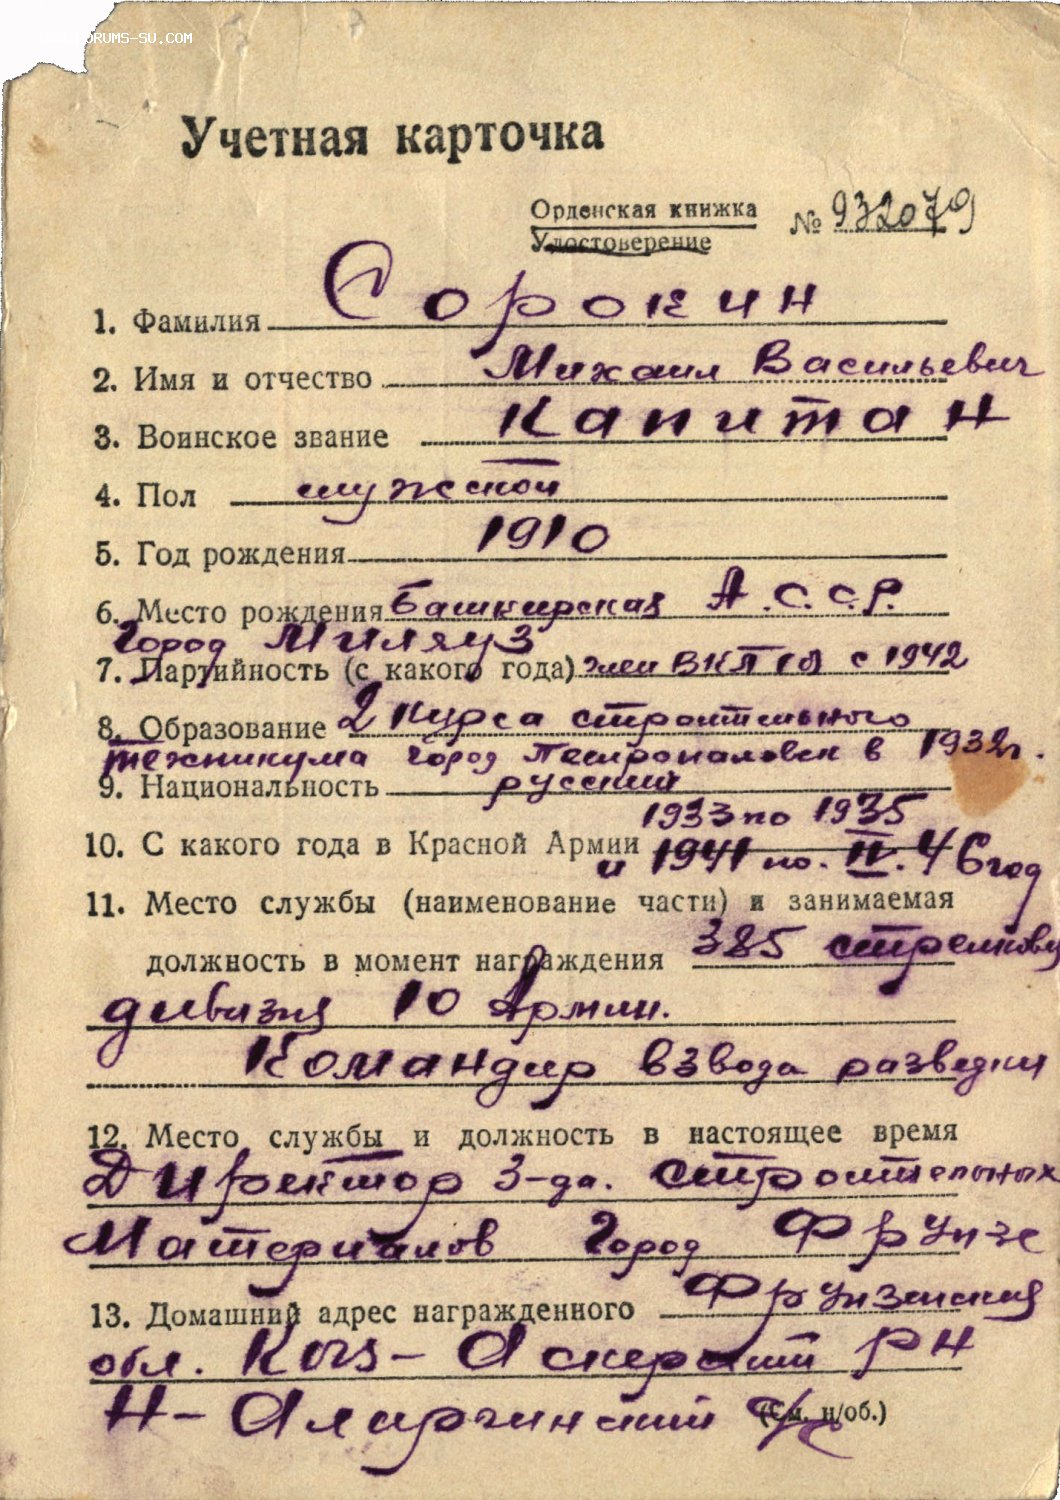 FORUMS-SU.COM
Учетная карточка
Орденская книжка № 932079
Удостоверение
1. Фамилия Сорокин
2. Имя и отчество Михаил Васильевич
3. Воинское звание Капитан
4. Пол мужской
5. Год рождения 1910
6. Место рождения Башкирская А.С.С.Р.
Город Миляуз
7. Партийность (с какого года) член ВКП(б) с 1942
8. Образование 2 курса строительного
техникума город Петропаловск в 1932г.
9. Национальность русский
1933 по 1935
10. С какого года в Красной Армии и 1941 по. IV. 46 год
11. Место службы (наименование части) и занимаемая
должность в момент награждения 385 стрелковая
дивизия 10 Армии.
Командир взвода разведки
12. Место службы и должность в настоящее время
Директор з-да. строительных
Материалов Город Фрунзе
13. Домашний адрес награжденного Фрунзенская
обл. Каз-Аскерский РН
Н-Аларчинский с/с
(См. н/об.)